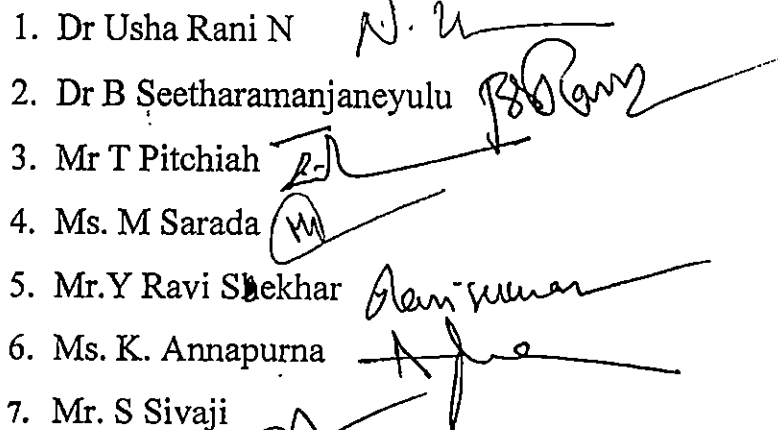 1. Dr Usha Rani N N. U
2. Dr B Seetharamanjaneyulu
3. Mr T Pitchiah
4. Ms. M Sarada M
5. Mr.Y Ravi Shekhar
6. Ms. K. Annapurna
7. Mr. S Sivaji